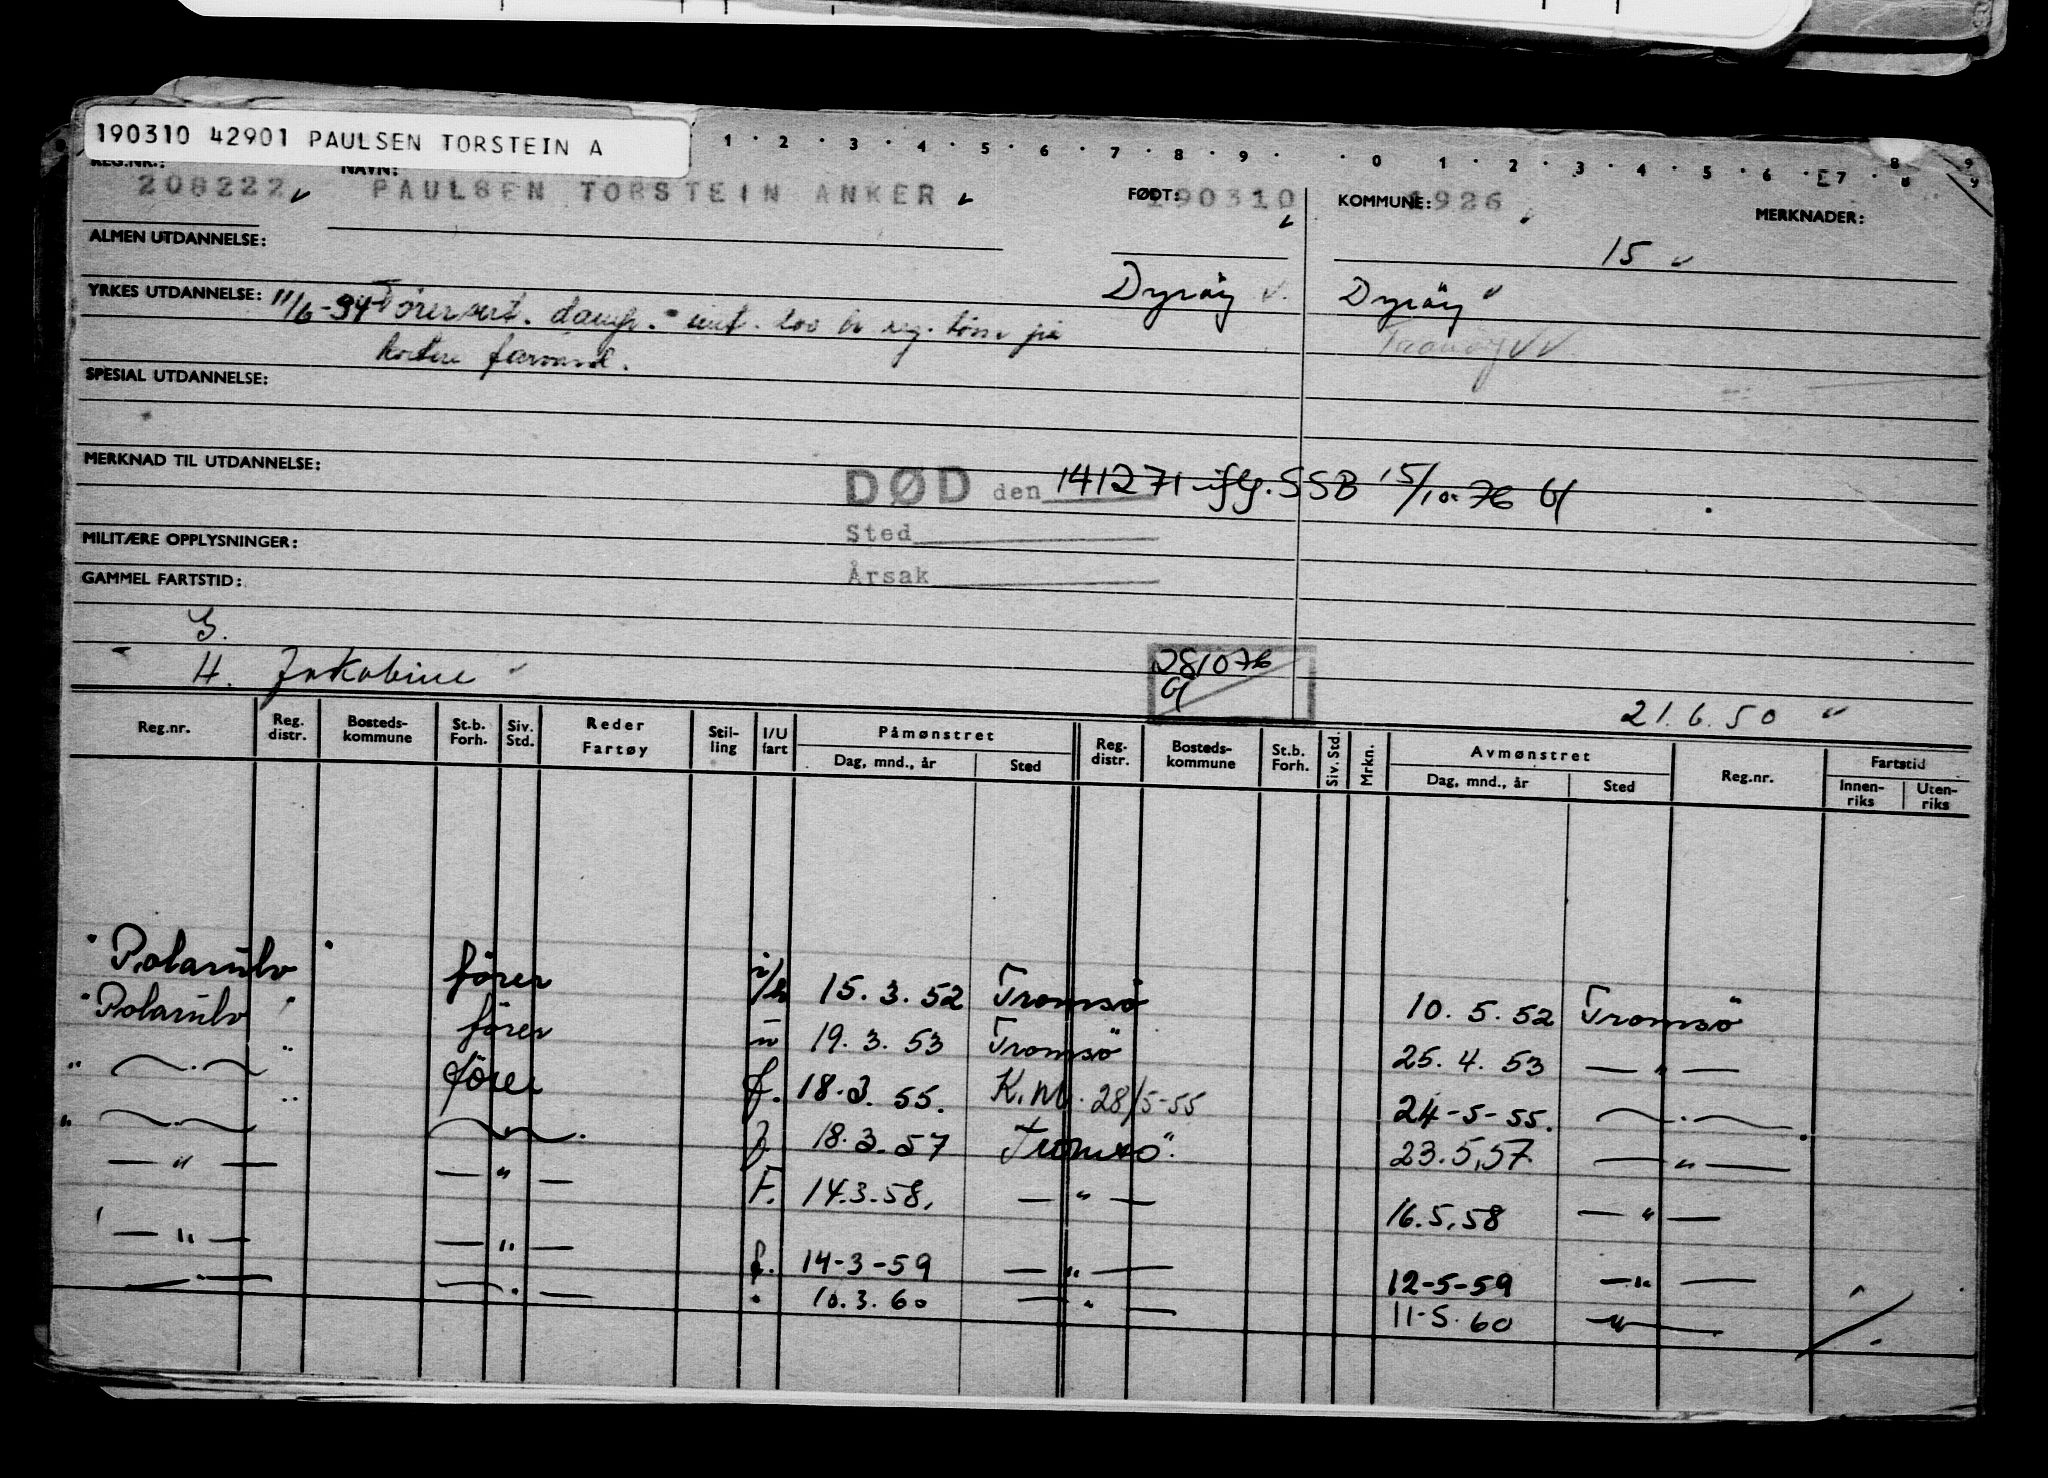 190310 42901 PAULSEN TORSTEIN A
1 · 2 · 3 · 4 · 5 · 6 · 7 · 8 · 9 · · 0 · 1 · 2 · 3 · 4 · 5 · 6 · 7 · 8 9
REG.NR.: NAVN: FØDT: KOMMUNE: MERKNADER:
208222 PAULSEN TORSTEIN ANKER 190310 1926
ALMEN UTDANNELSE: 15
YRKES UTDANNELSE: 11/6-34 Dyröy Dyröy
damp.
SPESIAL UTDANNELSE:
MERKNAD TIL UTDANNELSE:
DØD den 141271 iflg. SSB 15/10-76
Sted
MILITÆRE OPPLYSNINGER:
Årsak
GAMMEL FARTSTID:
G.
H. Jakobine 281076
21.6.50
Reg.nr. Reg. distr. Bosteds- kommune St.b. Forh. Siv. Std. Reder Fartøy Stil- ling I/U fart Påmønstret Dag, mnd., år Sted Reg. distr. Bosteds- kommune St.b. Forh. Siv. Std. Mrkn. Avmønstret Dag, mnd., år Sted Reg.nr. Fartstid Innen- riks Uten- riks
"Polarulv" förer 15.3.52 Tromsö 10.5.52 Tromsö
"Polarulv" förer 19.3.53 Tromsö 25.4.53 — " —
" — " förer f. 18.3.55. K.M. 28/5-55 24-5-55. — " —
" — " — " — f. 18.3.57 Tromsö 23.5.57 — " —
— " — — " — F. 14.3.58. — " — 16.5.58 — " —
— " — — " — f. 14-3-59 — " — 12-5-59 — " —
— " — — " — 10.3.60 — " — 11-5.60 — " —